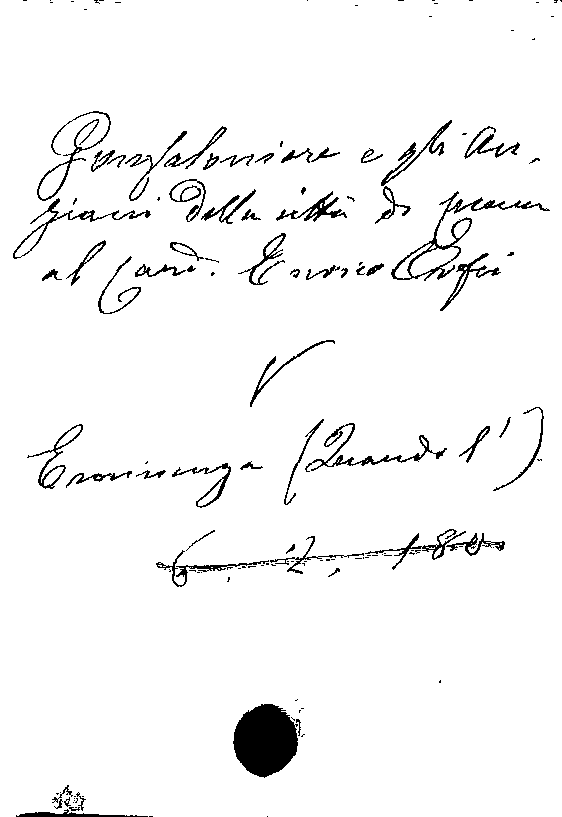 Gonfaloniere e gli An-
ziani della città di
al Card. Enrico
V
Eminenza (Quando l')
6. 2. 180